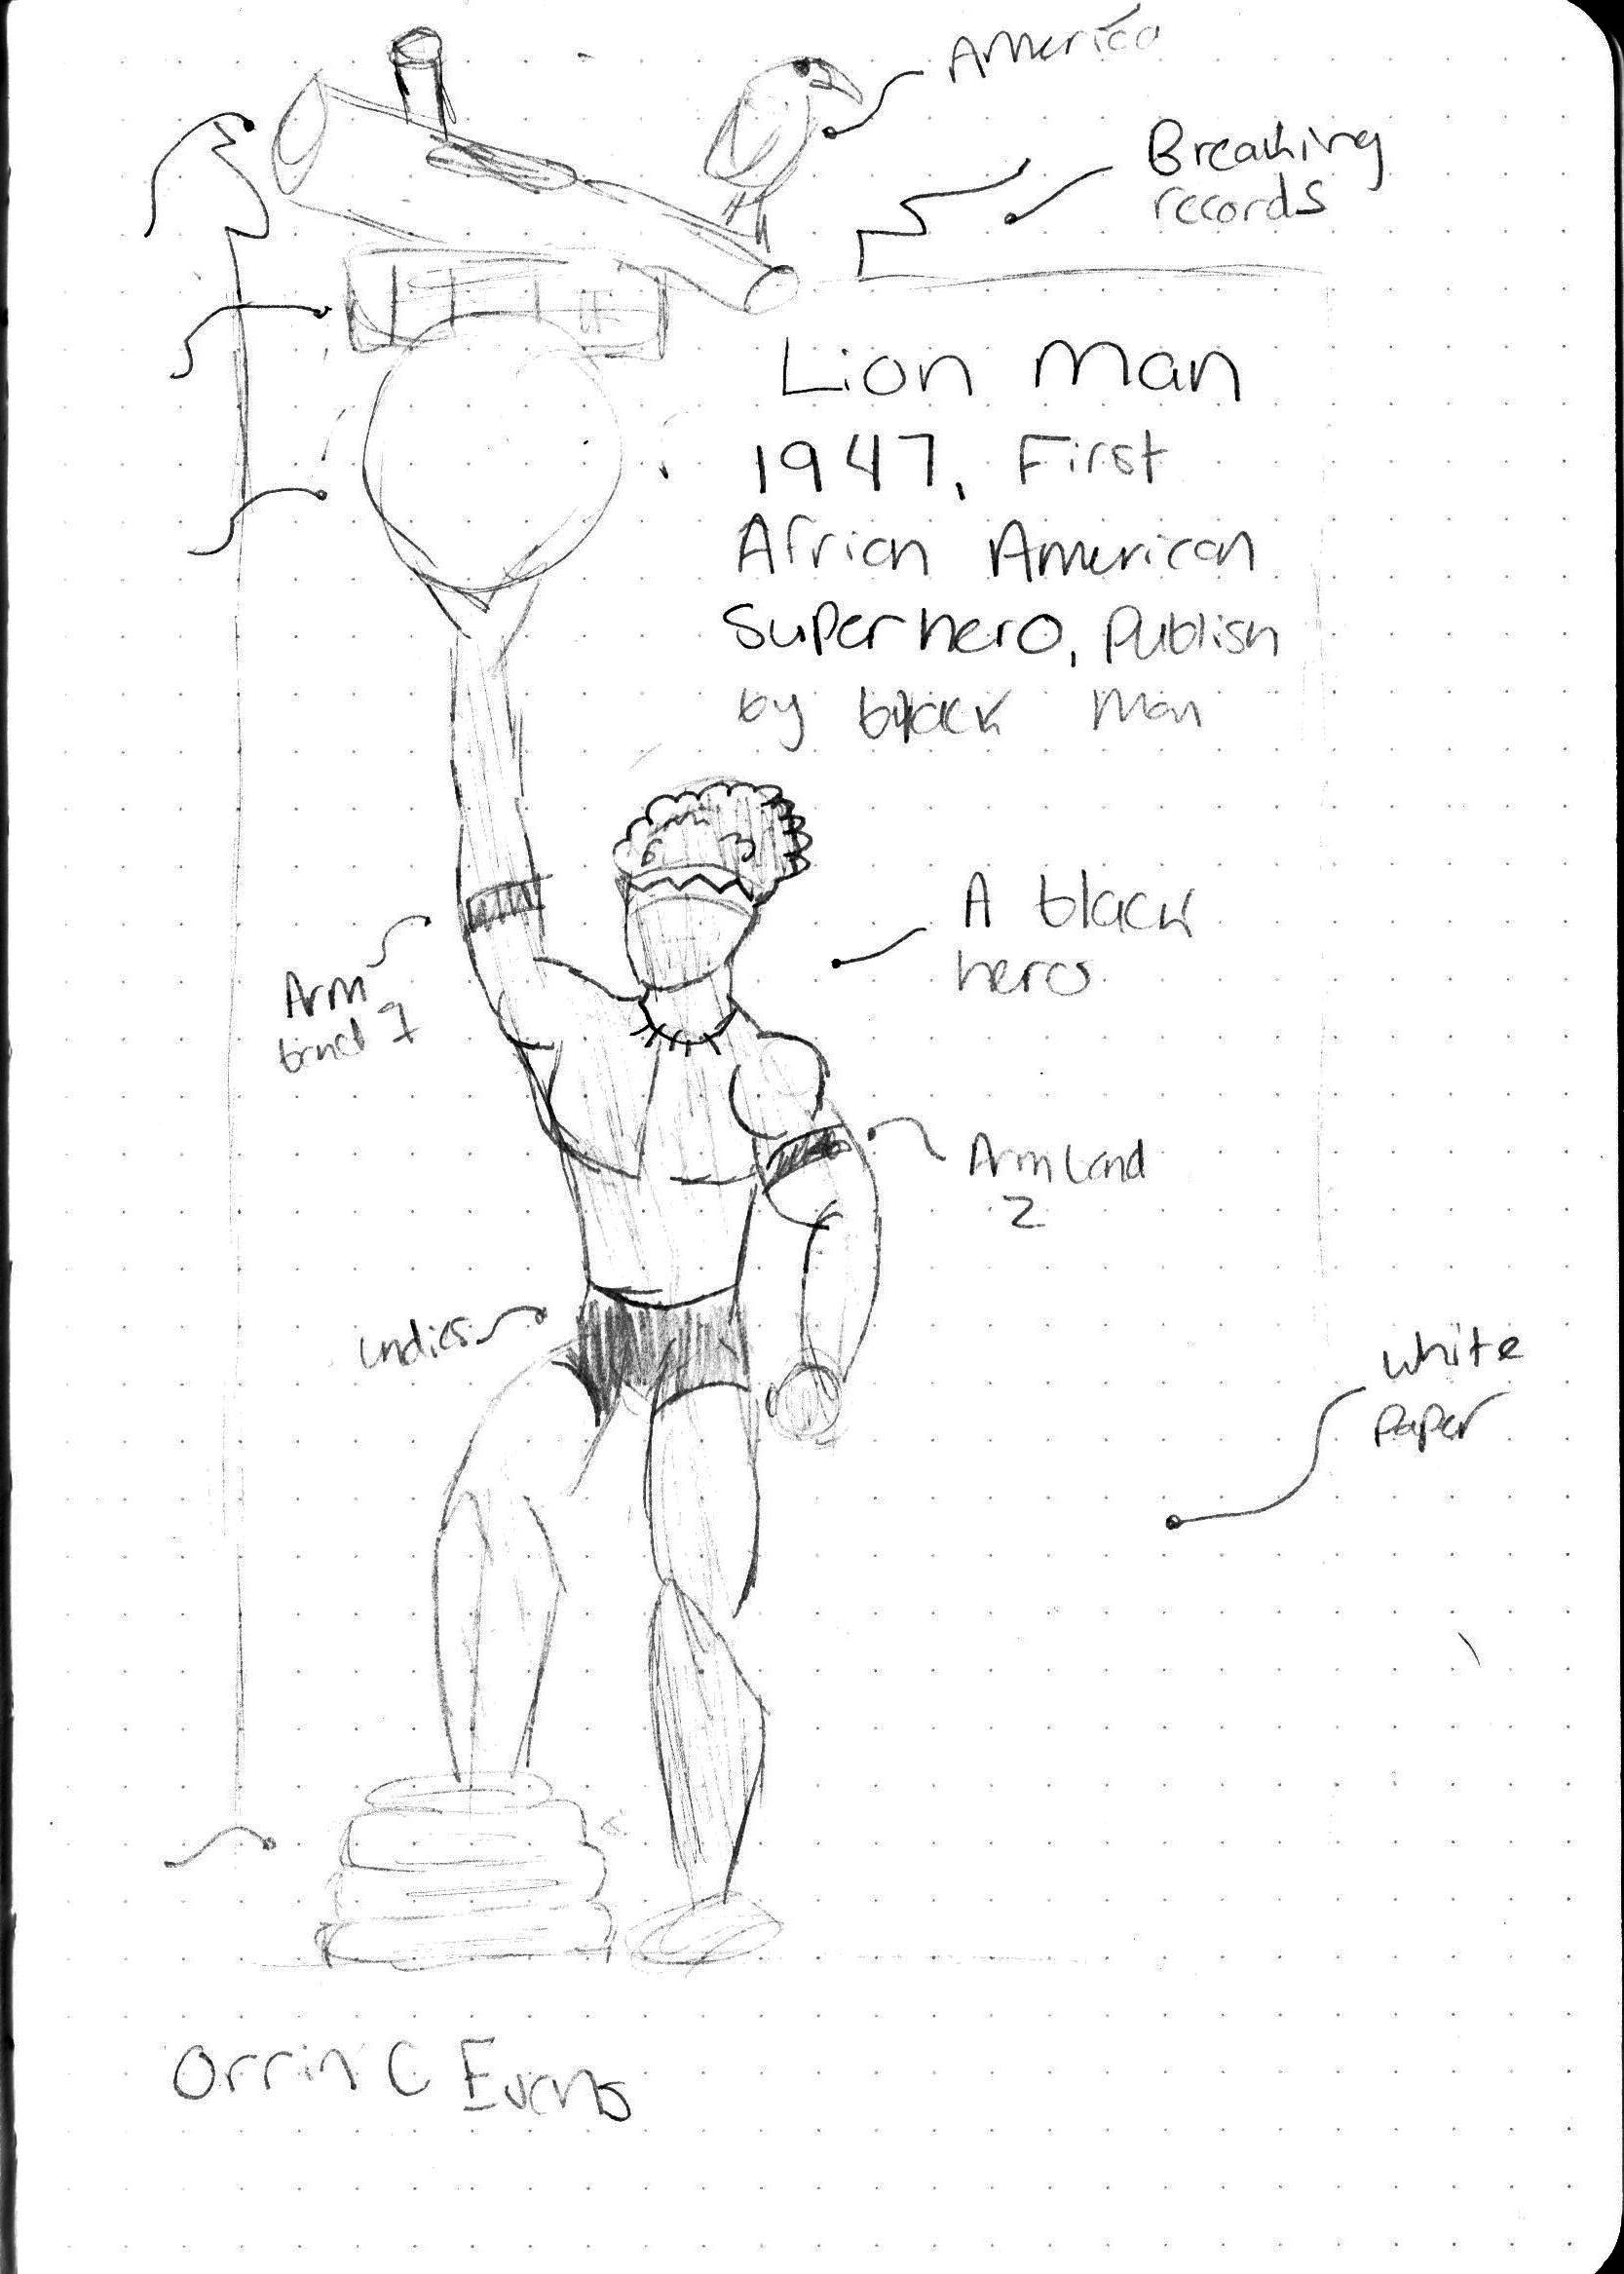 America
Breaking
records
Lion Man
1947, First
African American
Superhero, Publish
by black Man
A black
heros
Arm
band 1
Arm band
2
undies
white
paper
Orrin C Evens